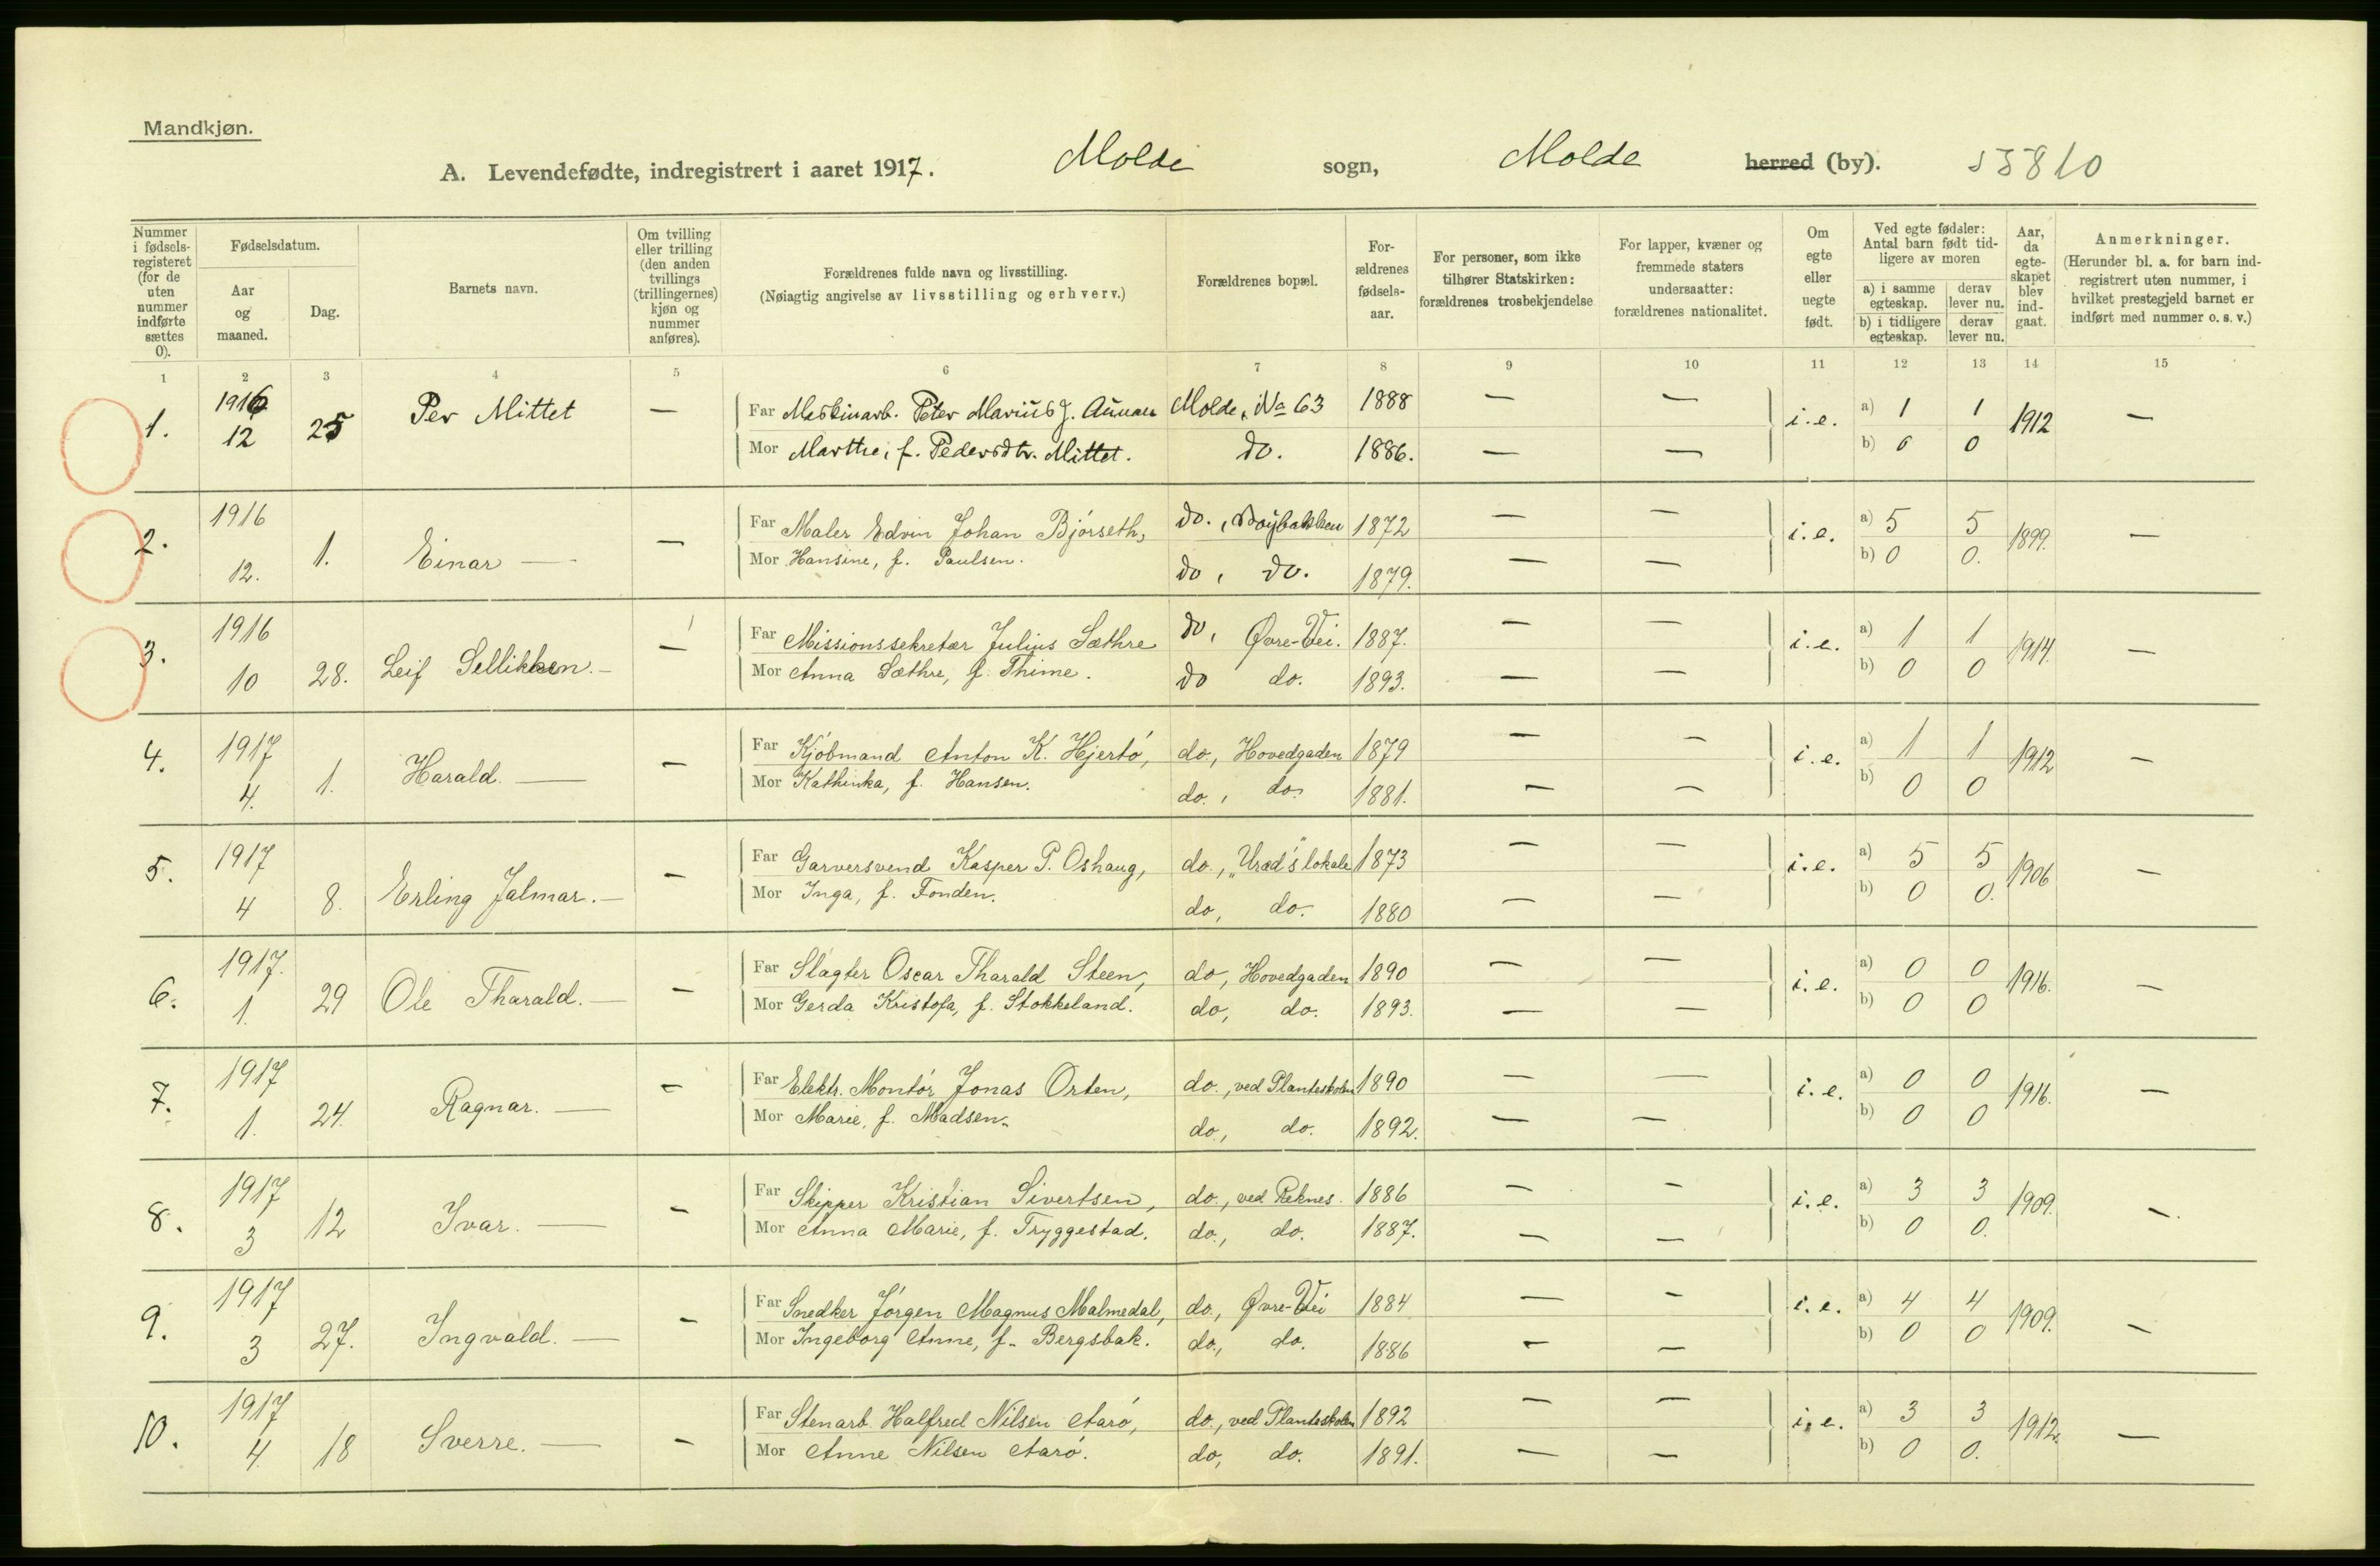 Mandkjøn.
A. Levendefødte, indregistrert i aaret 1917. Molde sogn, Molde herred (by). 55810
Nummer i fødsels-registeret (for de uten nummer indførte sættes 0).
Fødselsdatum.
Aar og maaned.
Dag.
Barnets navn.
Om tvilling eller trilling (den anden tvillings (trillingernes) kjøn og nummer anføres).
Forældrenes fulde navn og livsstilling.
(Nøiagtig angivelse av livsstilling og erhverv.)
Forældrenes bopæl.
For-ældrenes fødsels-aar.
For personer, som ikke tilhører Statskirken: forældrenes trosbekjendelse
For lapper, kvæner og fremmede staters undersaatter: forældrenes nationalitet.
Om egte eller uegte født.
Ved egte fødsler: Antal barn født tid-ligere av moren
a) i samme egteskap. derav lever nu.
b) i tidligere egteskap. derav lever nu.
Aar, da egte-skapet blev ind-gaat.
Anmerkninger.
(Herunder bl. a. for barn ind-registrert uten nummer, i hvilket prestegjeld barnet er indført med nummer o. s. v.)
1 2 3 4 5 6 7 8 9 10 11 12 13 14 15
1. 1916 12 25 Per Mittet — Far Maskinarb. Peter Marius J. Aunan Molde, No 63 1888 — — i.e. a) 1 1 1912 —
Mor Marthe, f. Pedersdtr. Mittet. do. 1886. — — b) 0 0
2. 1916 12. 1. Einar — — Far Maler Edvin Johan Bjørseth, do., 1872 — — i.e. a) 5 5 1899. —
Mor Hansine, f. Paulsen. do, do. 1879. — — b) 0 0.
3. 1916 10 28. Leif Sellikken. — — Far Missionssekretær Julius Sæthre do, Øvre-Vei. 1887. — — i.e. a) 1 1 1914. —
Mor Anna Sæthre, f. Thime. do do. 1893. — — b) 0 0
4. 1917 4. 1. Harald. — — Far Kjøbmand Anton K. Hjertø, do., Hovedgaden 1879 — — i.e. a) 1 1 1912 —
Mor Kathinka, f. Hansen. do., do. 1881. — — b) 0 0
5. 1917 4 8. Erling Jalmar. — — Far Garversvend Kasper P. Oshaug, do., „Uræd"s lokale 1873 — — i.e. a) 5 5 1906 —
Mor Inga, f. Fonden. do, do. 1880 — — b) 0 0.
6. 1917. 1. 29 Ole Tharald. — — Far Slagter Oscar Tharald Steen, do, Hovedgaden 1890 — — i.e. a) 0 0 1916. —
Mor Gerda Kristofa, f. Stokkeland. do, do. 1893. — — b) 0 0
7. 1917 1. 24. Ragnar. — — Far Elektr. Montør Jonas Orten, do., ved Planteskolen 1890 — — i.e. a) 0 0 1916. —
Mor Marie, f. Madsen. do., do. 1892. — — b) 0 0
8. 1917 3 12 Ivar. — — Far Skipper Kristian Sivertsen, do., ved Reknes. 1886 — — i.e. a) 3 3 1909. —
Mor Anna Marie, f. Tryggestad. do., do. 1887. — — b) 0 0.
9. 1917 3 27. Ingvald. — — Far Snedker Jørgen Magnus Malmedal, do., Øvre-Vei 1884 — — i.e. a) 4 4 1909. —
Mor Ingeborg Anne, f. Bergsbak. do., do. 1886 — — b) 0 0
10. 1917 4 18 Sverre. — — Far Stenarb. Halfred Nilsen Aarø, do., ved Planteskolen 1892 — — i.e. a) 3 3 1912. —
Mor Anne Nilsen Aarø. do, do. 1891. — — b) 0 0.